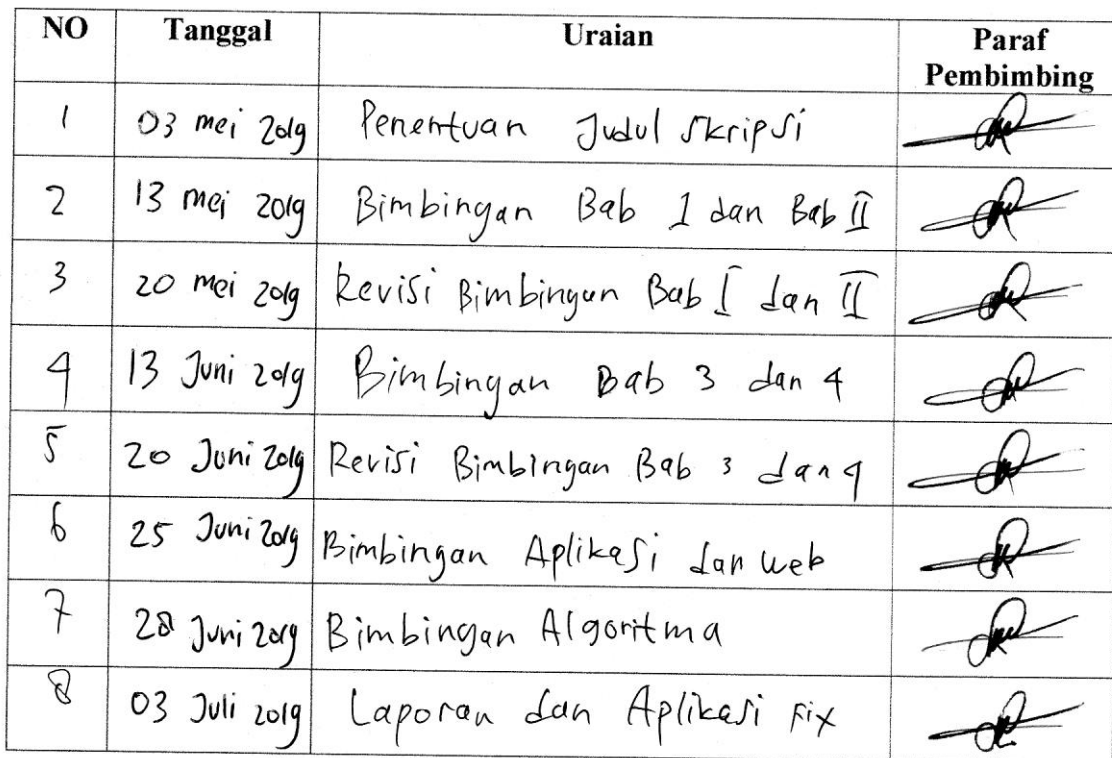 NO Tanggal Uraian Paraf Pembimbing
1 03 mei 2019 Penentuan Judul Skripsi
2 13 mei 2019 Bimbingan Bab I dan Bab II
3 20 mei 2019 Revisi Bimbingan Bab I dan II
4 13 Juni 2019 Bimbingan Bab 3 dan 4
5 20 Juni 2019 Revisi Bimbingan Bab 3 dan 4
6 25 Juni 2019 Bimbingan Aplikasi dan web
7 28 Juni 2019 Bimbingan Algoritma
8 03 Juli 2019 Laporan dan Aplikasi Fix